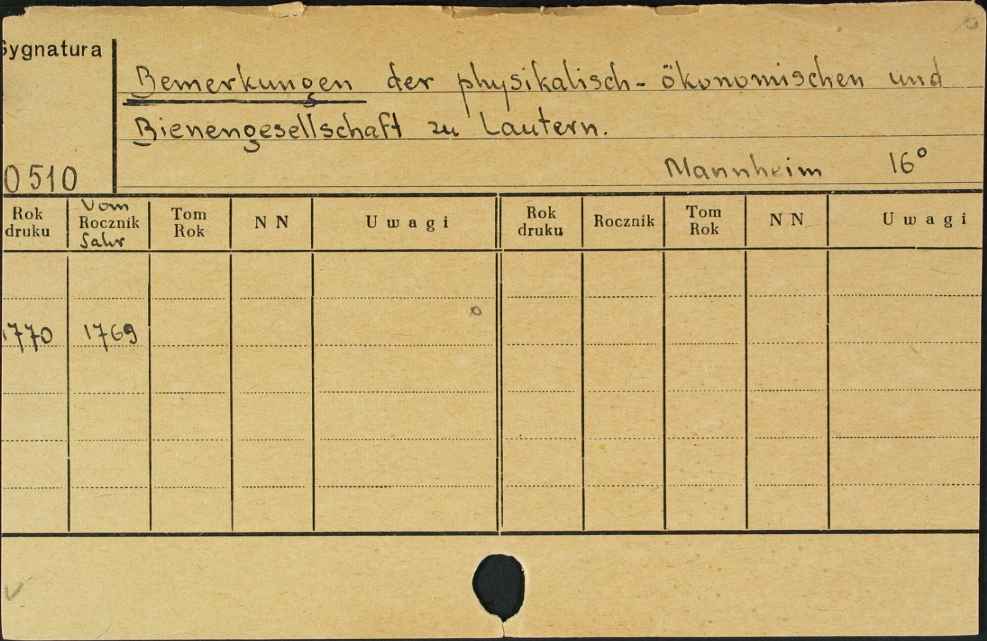 Sygnatura
Bemerkungen der physikalisch-ökonomischen und
Bienengesellschaft zu Lautern.
Mannheim 16°
0510
Rok druku Vom Rocznik Jahr Tom Rok NN Uwagi Rok druku Rocznik Tom Rok NN Uwagi
1770 1769